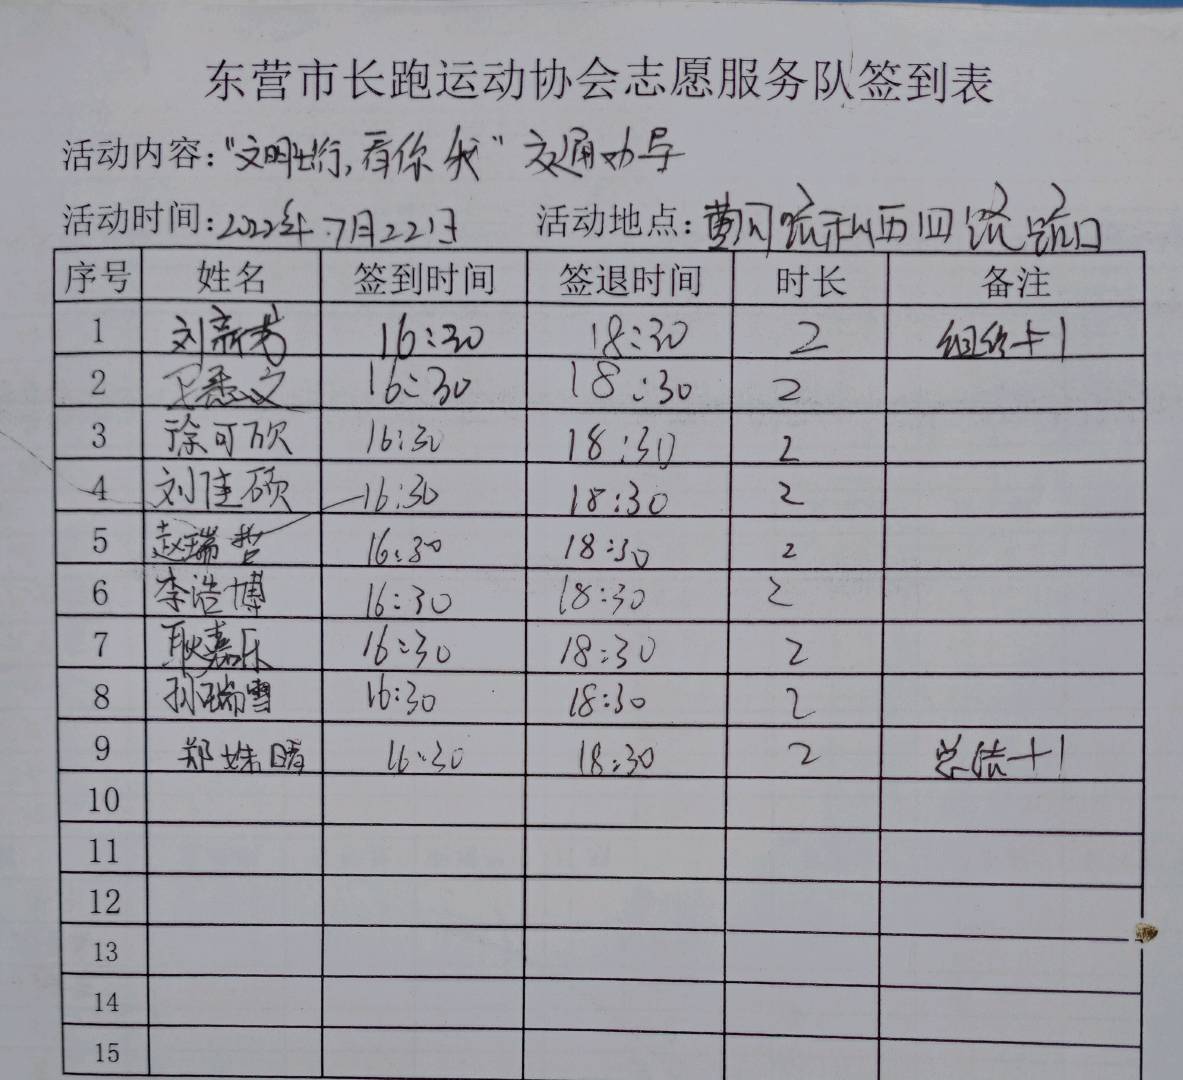 东营市长跑运动协会志愿服务队签到表
活动内容:“文明出行,看你我”交通劝导
活动时间:2022年.7月22日 活动地点:黄河路和西四路路口
序号 姓名 签到时间 签退时间 时长 备注
1 刘新 16:30 18:30 2 组织+1
2 16:30 18:30 2
3 徐可欣 16:30 18:30 2
4 刘佳硕 16:30 18:30 2
5 赵瑞哲 16:30 18:30 2
6 李浩博 16:30 18:30 2
7 耿嘉乐 16:30 18:30 2
8 孙瑞雪 16:30 18:30 2
9 郑姝暖 16:30 18:30 2 总结+1
10
11
12
13
14
15